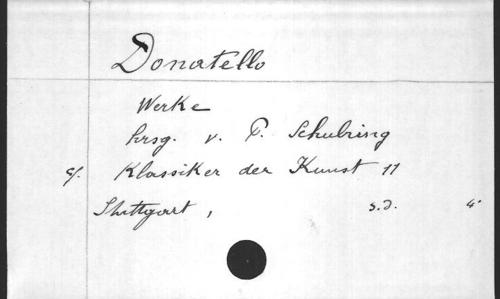 Donatello
Werke
hrsg. v. P. Schubring
Klassiker der Kunst 11
Stuttgart, s.d. 4°